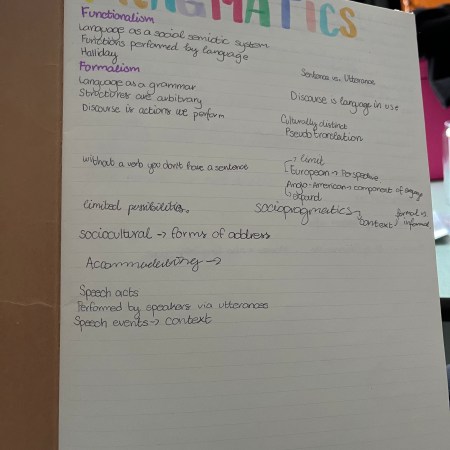 PRAGMATICS
Functionalism
Language as a social semiotic system
Functions performed by language
Halliday
Formalism
Sentence vs. Utterance
Language as a grammar
Structures are arbitrary
Discourse is language in use
Discourse is actions we perform
Culturally distinct
Pseudotranslation
without a verb you dont have a sentence
limit
European → Perspective
Anglo-American → component of
expand
limited possibilities.
sociopragmatics
context
formal vs. informal
sociocultural → forms of address
Accommodating →
Speech acts
Performed by speakers via utterances
Speech events → context